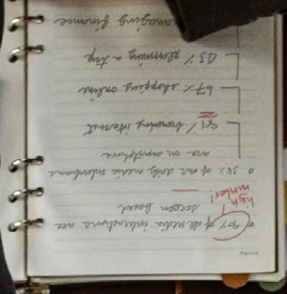 o 90% of all media interactions are
screen based
high
number!
o 38% of our daily media interactions
are on smartphone
81% browsing internet
67% shopping online
43% planning a trip
managing finance